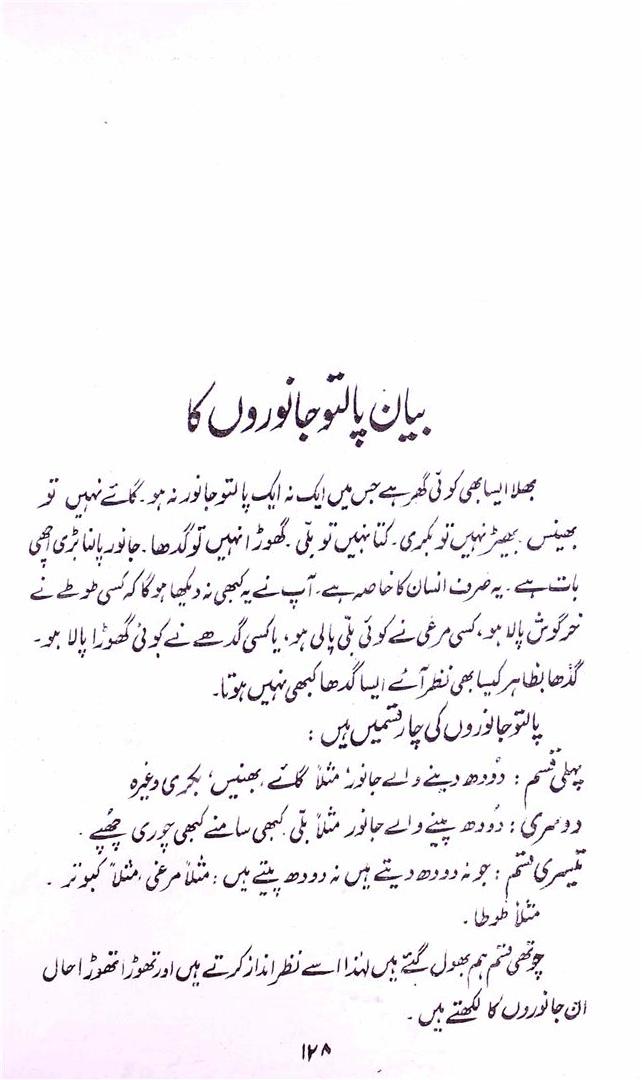 بیان پالتو جانوروں کا
بھلا ایسا بھی کوئی گھر ہے جس میں ایک نہ ایک پالتو جانور نہ ہو۔ گائے نہیں تو
بھینس۔ بھیڑ نہیں تو بکری۔ کتا نہیں تو بلّی۔ گھوڑا نہیں تو گدھا۔ جانور پالنا بڑی اچھی
بات ہے۔ یہ صرف انسان کا خاصہ ہے۔ آپ نے یہ کبھی نہ دیکھا ہوگا کہ کسی طوطے نے
خرگوش پالا ہو، کسی مرغی نے کوئی بلّی پالی ہو، یا کسی گدھے نے کوئی گھوڑا پالا ہو۔
گدھا بظاہر کیسا بھی نظر آئے ایسا گدھا کبھی نہیں ہوتا۔
پالتو جانوروں کی چار قسمیں ہیں :
پہلی قسم : دودھ دینے والے جانور، مثلاً گائے، بھینس، بکری وغیرہ
دوسری : دودھ پینے والے جانور مثلاً بلّی کبھی سامنے کبھی چوری چھپے۔
تیسری قسم : جو نہ دودھ دیتے ہیں نہ دودھ پیتے ہیں : مثلاً مرغی، مثلاً کبوتر۔
مثلاً طوطا۔
چوتھی قسم ہم بھول گئے ہیں لہٰذا اسے نظر انداز کرتے ہیں اور تھوڑا تھوڑا حال
ان جانوروں کا لکھتے ہیں۔
۱۲۸